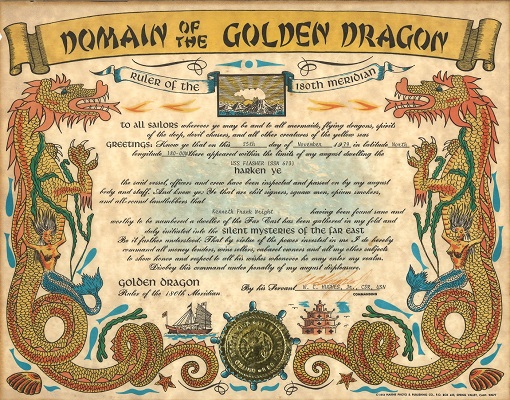 DOMAIN OF THE GOLDEN DRAGON
RULER OF THE 180TH MERIDIAN
TO ALL SAILORS wherever ye may be and to all mermaids, flying dragons, spirits
of the deep, devil chasers, and all other creatures of the yellow seas
GREETINGS: Know ye that on this 25th day of November 1979 in latitude North
longitude 180-00W there appeared within the limits of my august dwelling the
USS FLASHER (SSN 613)
HARKEN YE
the said vessel, officers and crew have been inspected and passed on by my august
body and staff. And know ye: Ye that are chit signers, squaw men, opium smokers,
and all-round landlubbers that
Kenneth Frank Weight having been found sane and
worthy to be numbered a dweller of the Far East has been gathered in my fold and
duly initiated into the SILENT MYSTERIES OF THE FAR EAST
Be it further understood: That by virtue of the power invested in me I do hereby
command all money lenders, wine sellers, cabaret owners and all my other subjects
to show honor and respect to all his wishes whenever he may enter my realm.
Disobey this command under penalty of my august displeasure.
GOLDEN DRAGON
Ruler of the 180th Meridian
By his Servant W. C. HUGHES, Jr., CDR, USN
COMMANDING